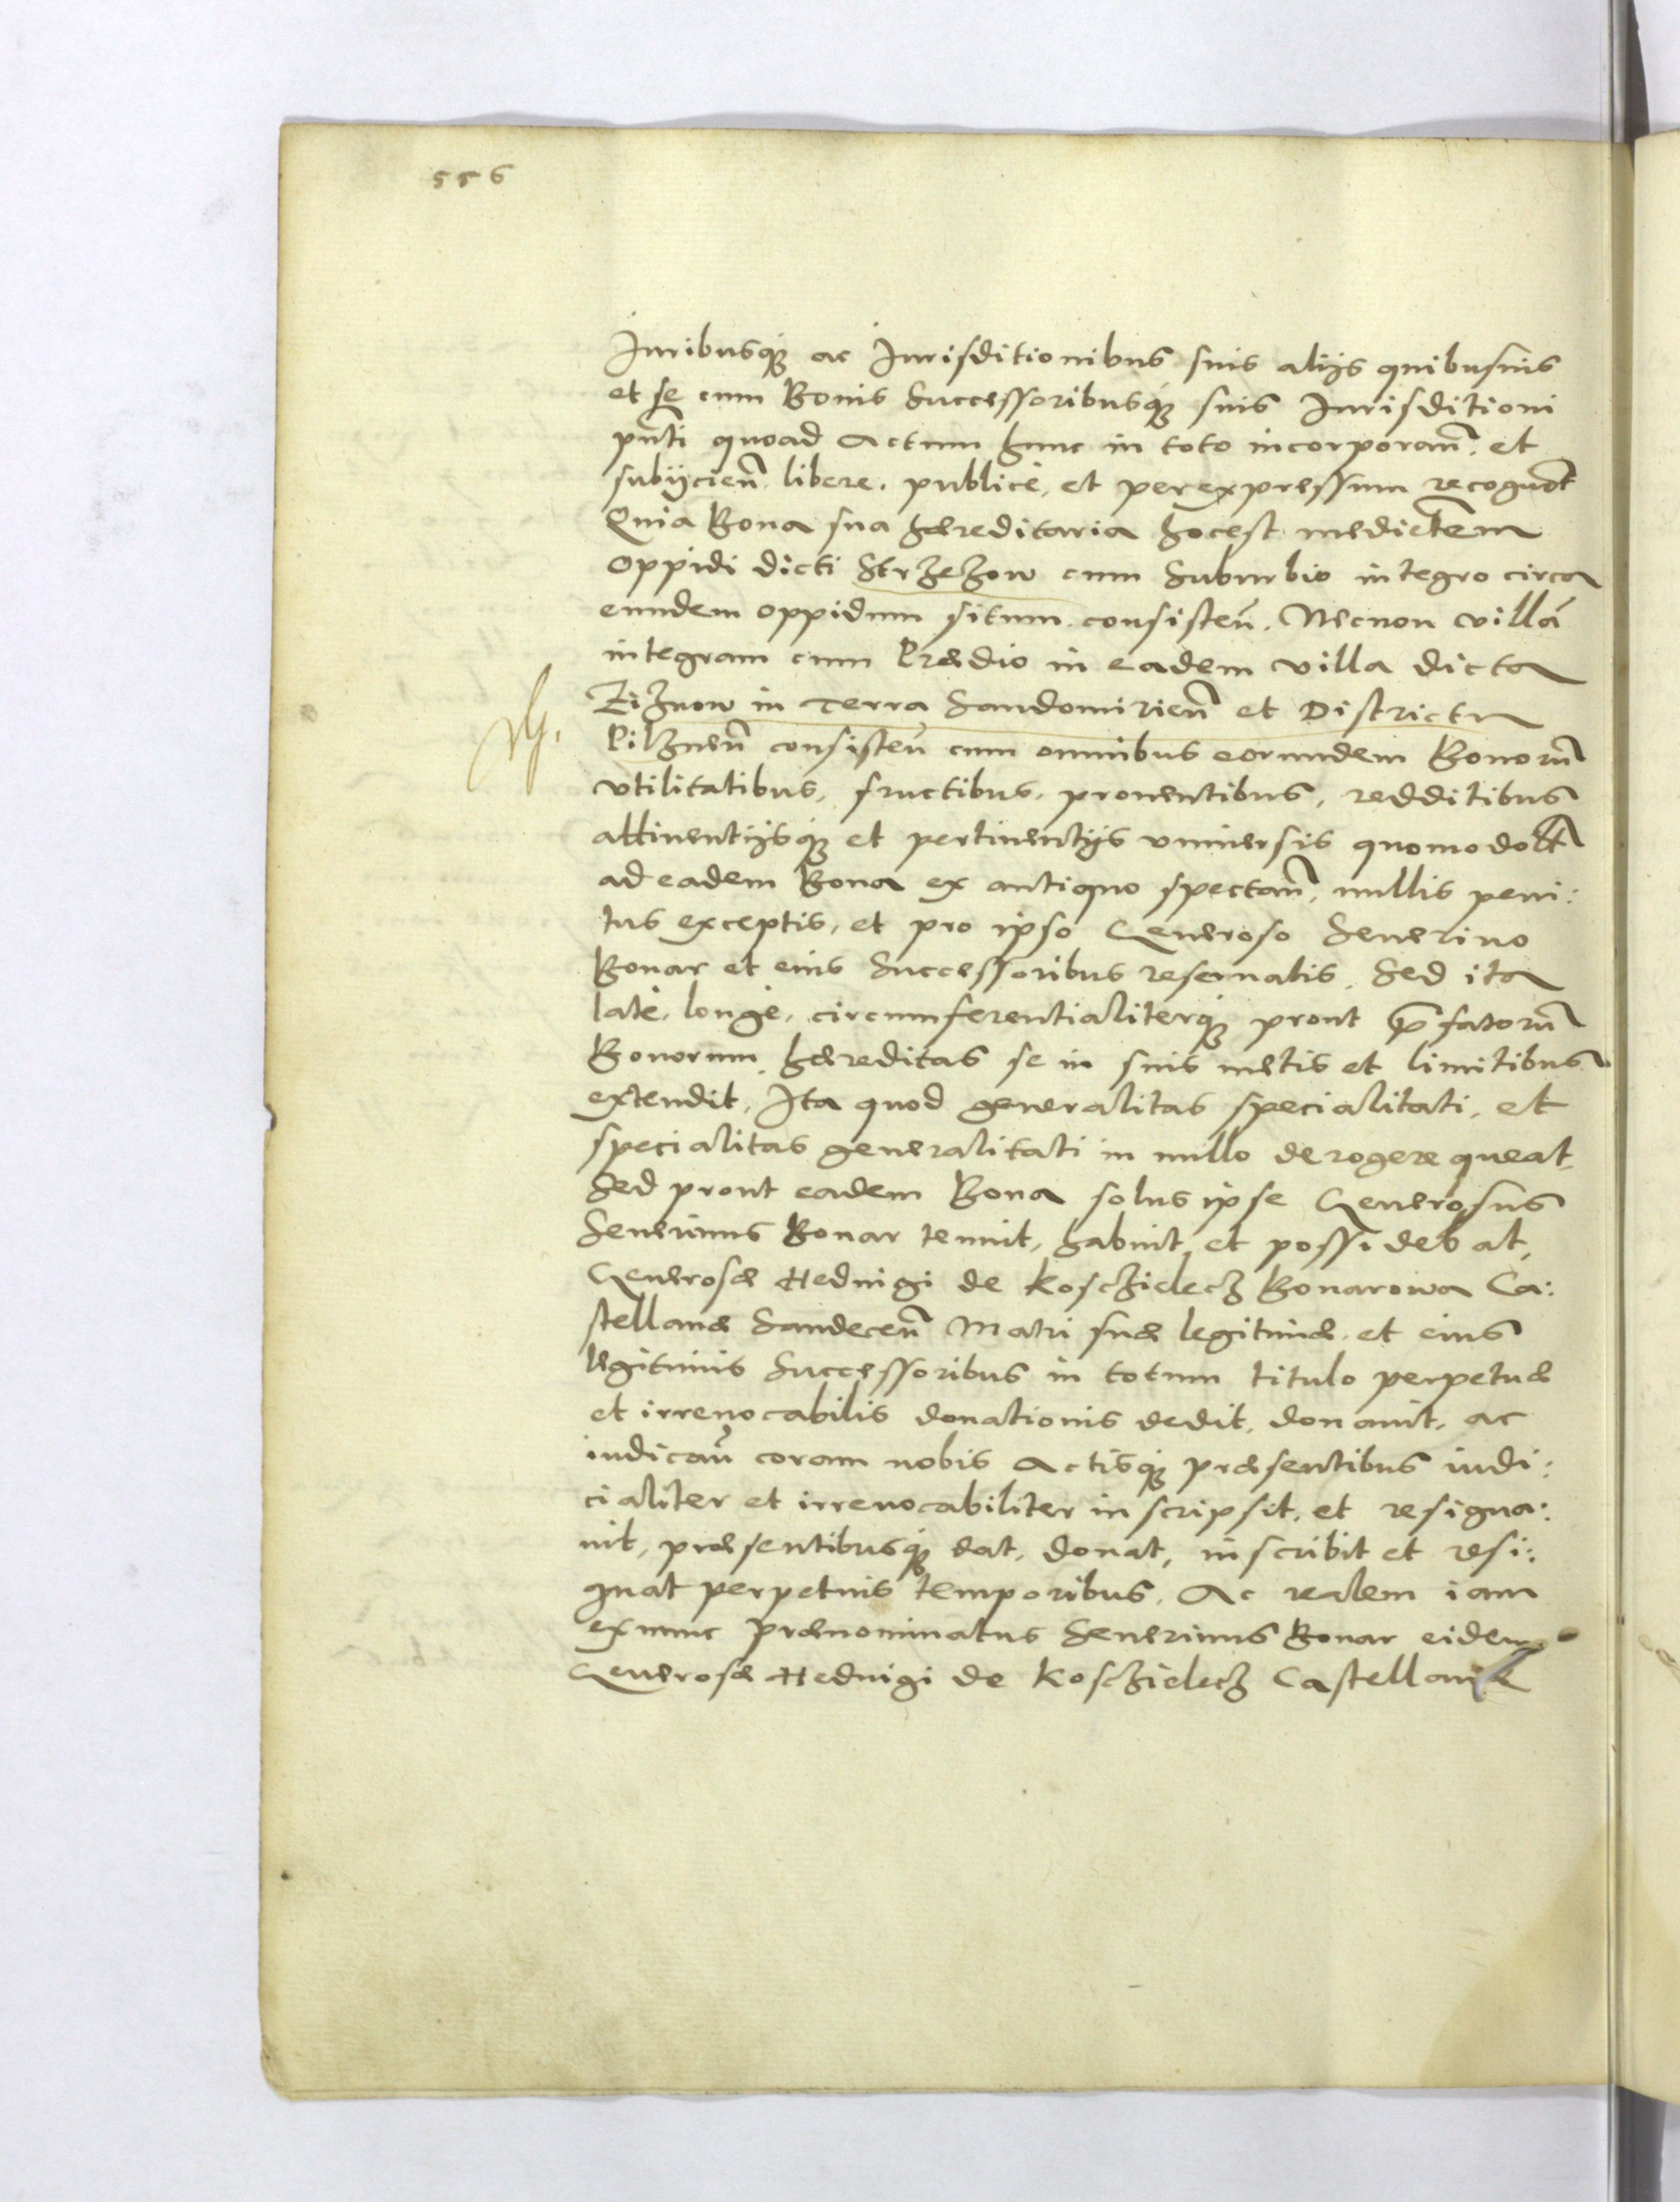 556
Iuribusq3 ac Iurisditionibus suis alijs quibusuis
et se cum Bonis Successoribusq3 suis Iurisditioni
pnti quoad Actum hunc in toto incorporan. et
subijcien. libere. publicè, et per expressum recognoт
Quia Bona sua hæreditaria hocest medietem
Oppidi dicti Strzezow cum Suburbio integro circa
eundem oppidum situm consisten. Necnon villã
integram cum Prædio in eadem villa dicta
Ziznow in Terra Sandomirien et Districtu
Pilznen consisten cum omnibus eorundem Bonorũ
vtilitatibus, fructibus, prouentibus, redditibus
attinentijsq3 et pertinentijs vniuersis quomodolt
ad eadem Bona ex antiquo spectan, nullis peni:
tus exceptis, et pro ipso Generoso Seuerino
Bonar et eius Successoribus reseruatis. Sed ita
latè, longè, circumferentialiterq3 prout p̃fatorũ
Bonorum hæreditas se in suis metis et limitibus
extendit, Ita quod generalitas specialitati, et
specialitas generalitati in nullo derogere queat,
Sed prout eadem Bona solus ipse Generosus
Seuerinus Bonar tenuit, habuit, et possidebat,
Generosæ Heduigi de Koschielecz Bonarowa Ca:
stellanæ Sandecen Matri suæ legitimæ. et eius
legitimis Successoribus in totum titulo perpetuæ
et irreuocabilis donationis dedit, donauit, ac
iudicaũ coram nobis Actisq3 præsentibus iudi:
cialiter et irreuocabiliter inscripsit, et resigna:
uit, præsentibusq3 dat, donat, inscribit et resi:
gnat perpetuis temporibus. Ac realem iam
exnunc prænominatus Seuerinus Bonar eidem
Generosæ Heduigi de Koschielecz Castellanæ